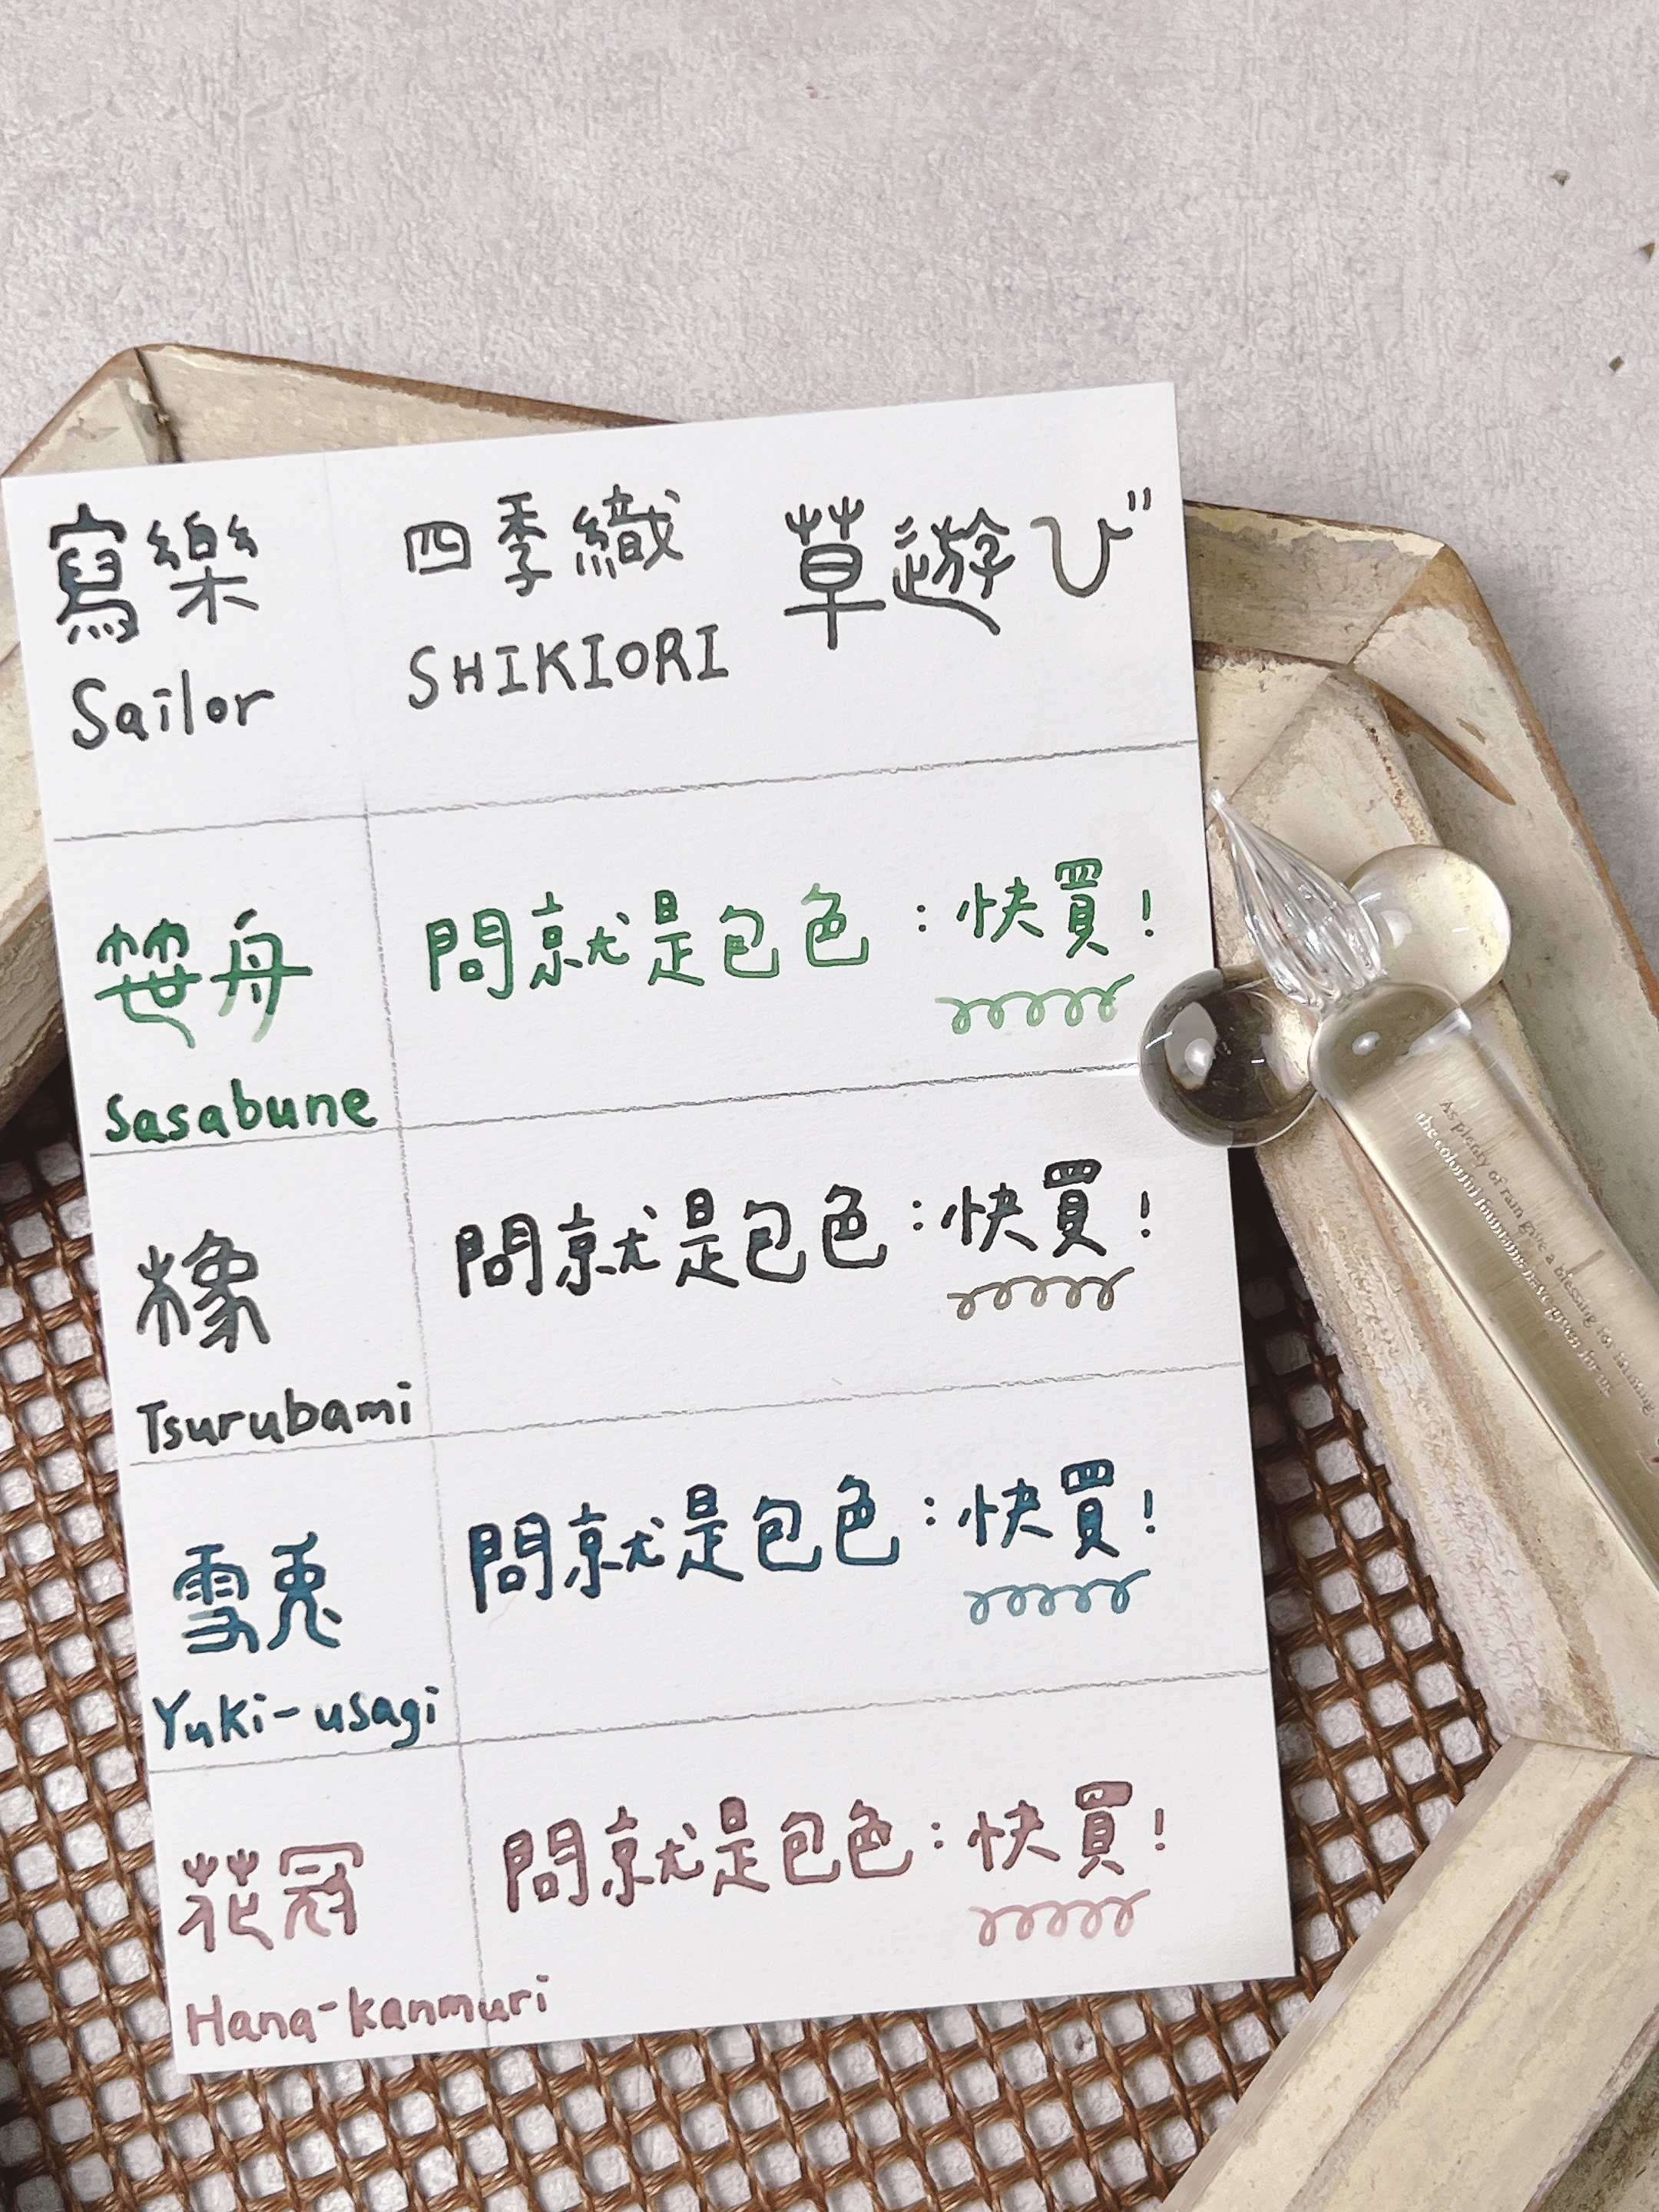 寫樂 四季織 草遊び
Sailor SHIKIORI
笹舟 問就是包色：快買！
Sasabune
橡 問就是包色：快買！
Tsurubami
雪兎 問就是包色：快買！
Yuki-usagi
花冠 問就是包色：快買！
Hana-kanmuri
As plenty of rain give a blessing for
the colorful fountains have given for us